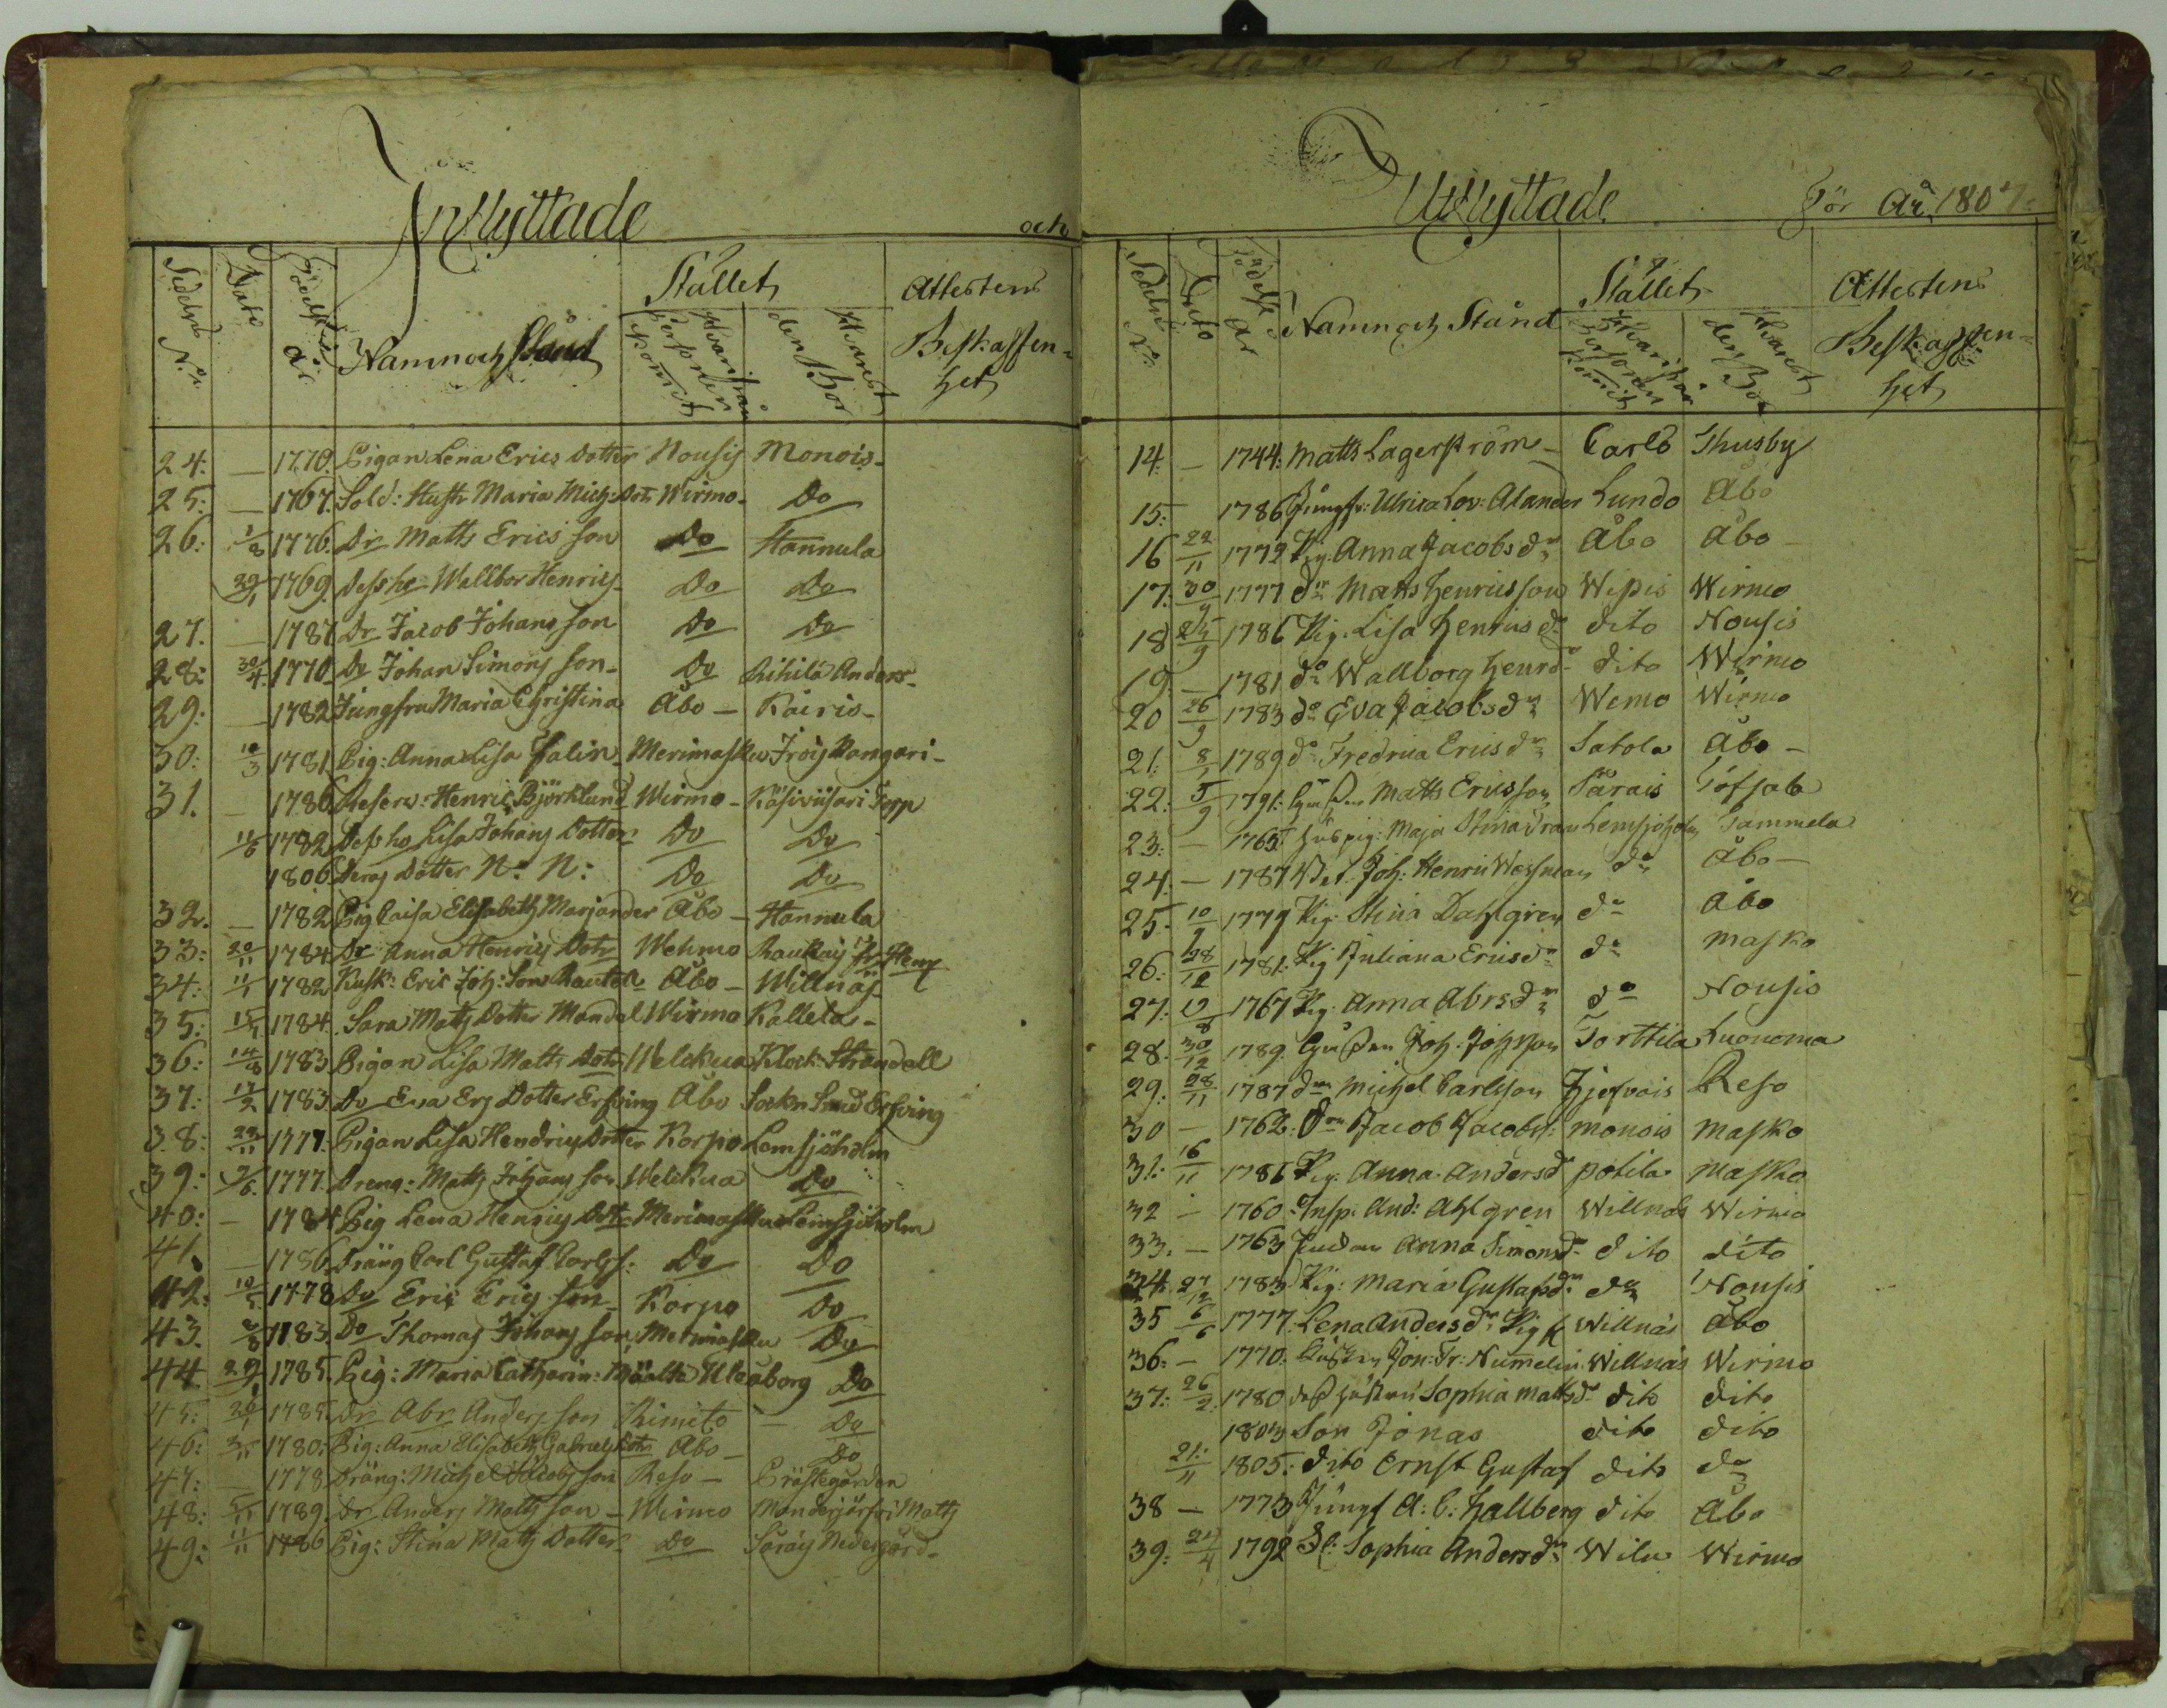 Inflyttade och
Sedelns N:r Dato Födelse år Namn och Stånd Stället Hvarifrån Personen kommit Hvarest den Bor Attestens Beskaffenhet
24: — 1770. Pigan Lena Erics Dotter Nousis Monois-
25: — 1767. Sold: Hustr Maria Mich: Dotr Wirmo- Do
26: 1/8 1776. Dr Matts Erics son Do Hannula
29/1 1769. Dess he Wallbor Henrics- Do Do
27. — 1787 Dr Jacob Johans son Do Do
28: 30/4 1770. Do Johan Simons son- Do Rihilä Anders-
29: — 1782 Jungfru Maria Christina Åbo — Kairis-
30: 10/3 1781 Pig: Anna Lisa Falin Merimasku Frois Kangari-
31. — 1786 Reserv: Henric Björklund Wirmo- Käsivüsari Torp
11/6 1782 Dess ho Lisa Johans Dotter Do Do
1806 Deras Dotter N: N: Do Do
32. — 1782 Pig Caisa Elisabeth Marjander Åbo — Hannula
33: 20/11 1784 Dr Anna Henrics Dotr Wehmo Raukais
34: 11/1 1782 Kusk: Eric Joh: Son Rautell Åbo — Willnäs
35: 15/1 1784. Sara Matts Dotter Mandel Wirmo Kalleta-
36: 14/8 1783 Pigan Lisa Matts Dotr Welckua Klock: Strandell
37: 17/2 1783 Do Eva Ers Dotter Erfving Åbo Sockn Smed Erfving
38: 29/11 1777. Pigan Lisa Hendrics Dotter Korpo Lemsjöholm
39: 7/6 1777. Dreng: Matts Johans son Welckua Do
40: — 1784 Pig Lena Henrics Dotr Merimasku Lemsjöholm
41. — 1786. Dräng Carl Gustaf Carls s: Do Do
42: 10/5 1778 Do Eric Erics son- Korpo Do
43. 2/8 1783. Do Thomas Johans son, Merimasku Do
44 29/1 1785. Pig: Maria Catharin: Määlta Uleåborg Do
45: 30/1 1785. Dr Abr. Anders son Rimito — Do
46: 3/11 1780: Pig: Anna Elisabeth Gabriels Dotr Åbo — Do
47: — 1778 Dräng: Michel Jacobs son Reso — Prästegården
48: 5/11 1789. Dr Anders Matts son — Wirmo Manderjärfvi Matts
49: 11/11 1786 Pig: Stina Matts Dotter Do Saräis Nedergård-
Utflyttade För År 1807
Sedelns N:r Dato Födelse år Namn och Stånd Stället Hvarifrån Personen kommit Hvarest den Bor Attestens Beskaffenhet
14: — 1744: Matts Lagerström — Carlb Thusby
15: 1786 Jungfr: Ulrica Lov: Alander Lundo Åbo
16 22/11 1772 Pig. Anna Jacobs dr Åbo Åbo —
17. 30/9 1777 dr Matts Henricsson Wipis Wirmo
18 25/9 1786 Pig. Lisa Henrics dr dito Nousis
19. — 1781 do Wallborg Henr dr dito Wirmo
20 26/9 1783 do Eva Jacobs dr Wemo Wirmo
21. 8/1 1789 do Fredrica Erics dr Satola Åbo —
22: 5/9 1791: Matts Ericsson Särais Töfsala
23: — 1765. Huspig: Maja Stina Lemsjöholm Tammela
24. — 1787 Joh: Henric Wessman do Åbo —
25. 10/9 1779 Pig: Stina Dahlgren do Åbo
26: 28/12 1781: Pig Juliana Erics dr do Masko
27: 10/8 1767 Pig. Anna Abrs dr do Nousis
28. 30/12 1789. Gossen Joh. Johsson Torttila Luonoma
29: 28/11 1787 dn Michel Carlsson Hjervais Reso
30 — 1762: dn Jacob Jacobss: Monois Masko
31: 16/11 1786 Pig. Anna Anders dr Potila Masko
32 — 1760. Insp: And: Ahlgren Willnäs Wirmo
33. — 1763 Anna Simons dr dito dito
34. 27/12 1783 Pig: Maria Gustafs dr do Nousis
35 6/6 1777: Lena Anders dr Pig Willnäs Åbo
36: — 1770. Jon: Fr: Numelin Willnäs Wirmo
37: 26/2 1780 dess hustru Sophia Matts dr dito dito
1803 Son Jonas dito dito
21/11 1805: dito Ernst Gustaf dito do
38 — 1773 Jungf A: C: Hallberg dito Åbo
39: 24/4 1792 Sophia Anders dr Wilu Wirmo